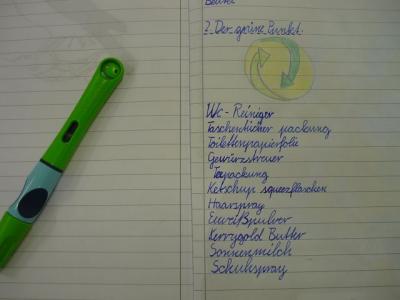 Beutel
? Der grüne Punkt
Wc-Reiniger
Taschentücher packung
Toilettenpapierfolie
Gewürzstreuer
Teepackung
Ketschup squeezflaschen
Haarspray
Eiweißpulver
Kerrygold Butter
Sonnenmilch
Schuhspray